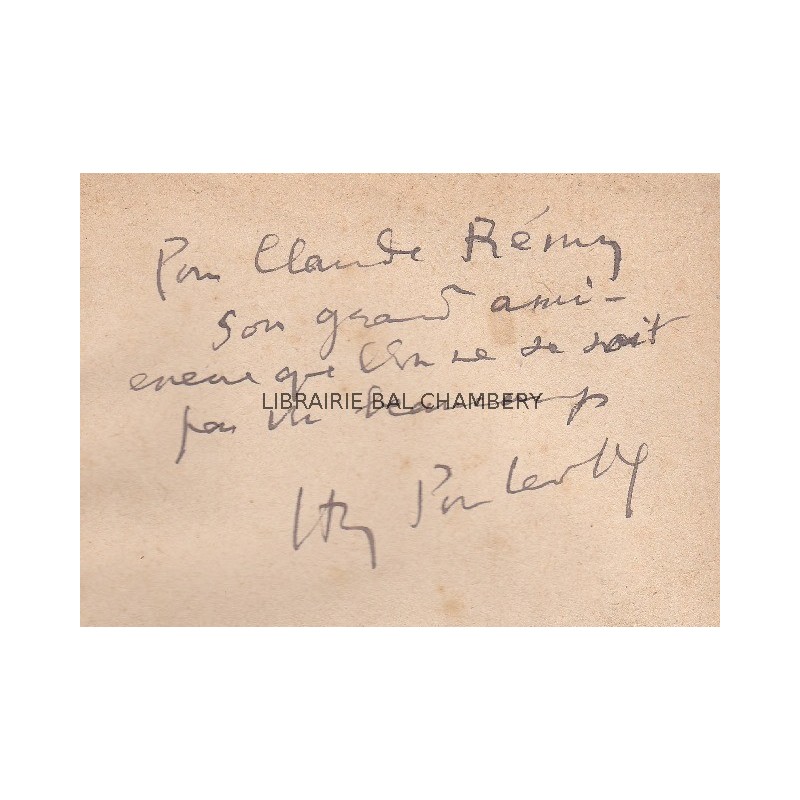 Pour Claude Rémy
son grand ami –
encore que l'on ne se soit
LIBRAIRIE BAL CHAMBERY
pas vu beaucoup
Hry Poulaille